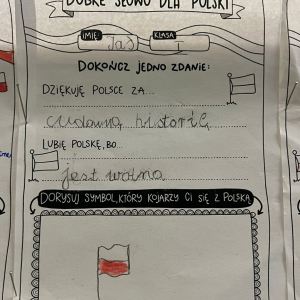 DOBRE SŁOWO DLA POLSKI
IMIĘ: Jaś KLASA: I
DOKOŃCZ JEDNO ZDANIE:
DZIĘKUJĘ POLSCE ZA...
cudowną historię
LUBIĘ POLSKĘ, BO...
jest wolna
DORYSUJ SYMBOL, KTÓRY KOJARZY CI SIĘ Z POLSKĄ